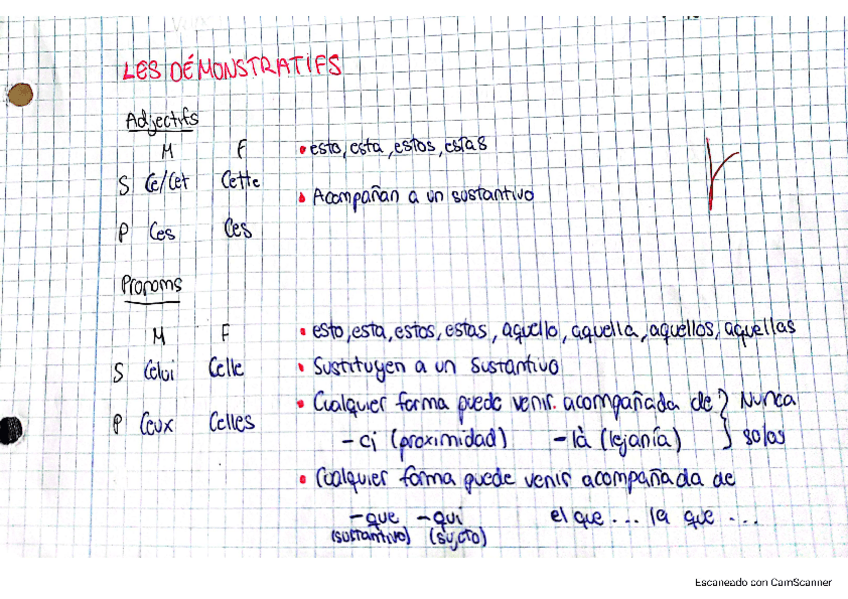 LES DÉMONSTRATIFS
Adjectifs
M F • esto, esta, estos, estas
S Ce/Cet Cette
• Acompañan a un sustantivo
P Ces Ces
Pronoms
M F • esto, esta, estos, estas, aquello, aquella, aquellos, aquellas
S Celui Celle • Sustituyen a un sustantivo
• Cualquier forma puede venir acompañada de } Nunca
P Ceux Celles
-ci (proximidad) -là (lejanía) } solas
• Cualquier forma puede venir acompañada de
-que -qui el que ... la que ...
(sustantivo) (sujeto)
Escaneado con CamScanner